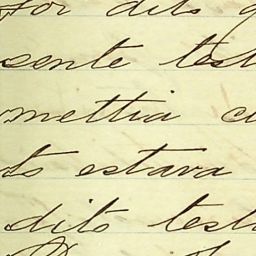 por dito
sente test
mettia c
to estava
dito test